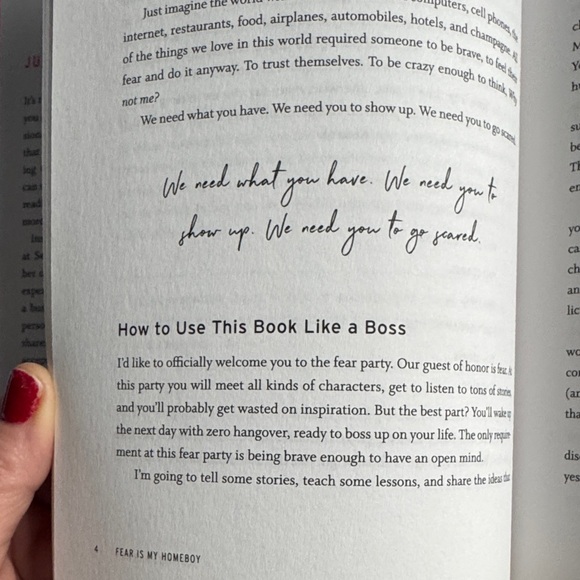 Just imagine the world computers, cell phones, the
internet, restaurants, food, airplanes, automobiles, hotels, and champagne. All
of the things we love in this world required someone to be brave, to feel their
fear and do it anyway. To trust themselves. To be crazy enough to think, Why
not me?
We need what you have. We need you to show up. We need you to go scared.
We need what you have. We need you to
show up. We need you to go scared.
How to Use This Book Like a Boss
I'd like to officially welcome you to the fear party. Our guest of honor is fear. At
this party you will meet all kinds of characters, get to listen to tons of stories,
and you'll probably get wasted on inspiration. But the best part? You'll wake up
the next day with zero hangover, ready to boss up on your life. The only require-
ment at this fear party is being brave enough to have an open mind.
I'm going to tell some stories, teach some lessons, and share the ideas that
4 FEAR IS MY HOMEBOY